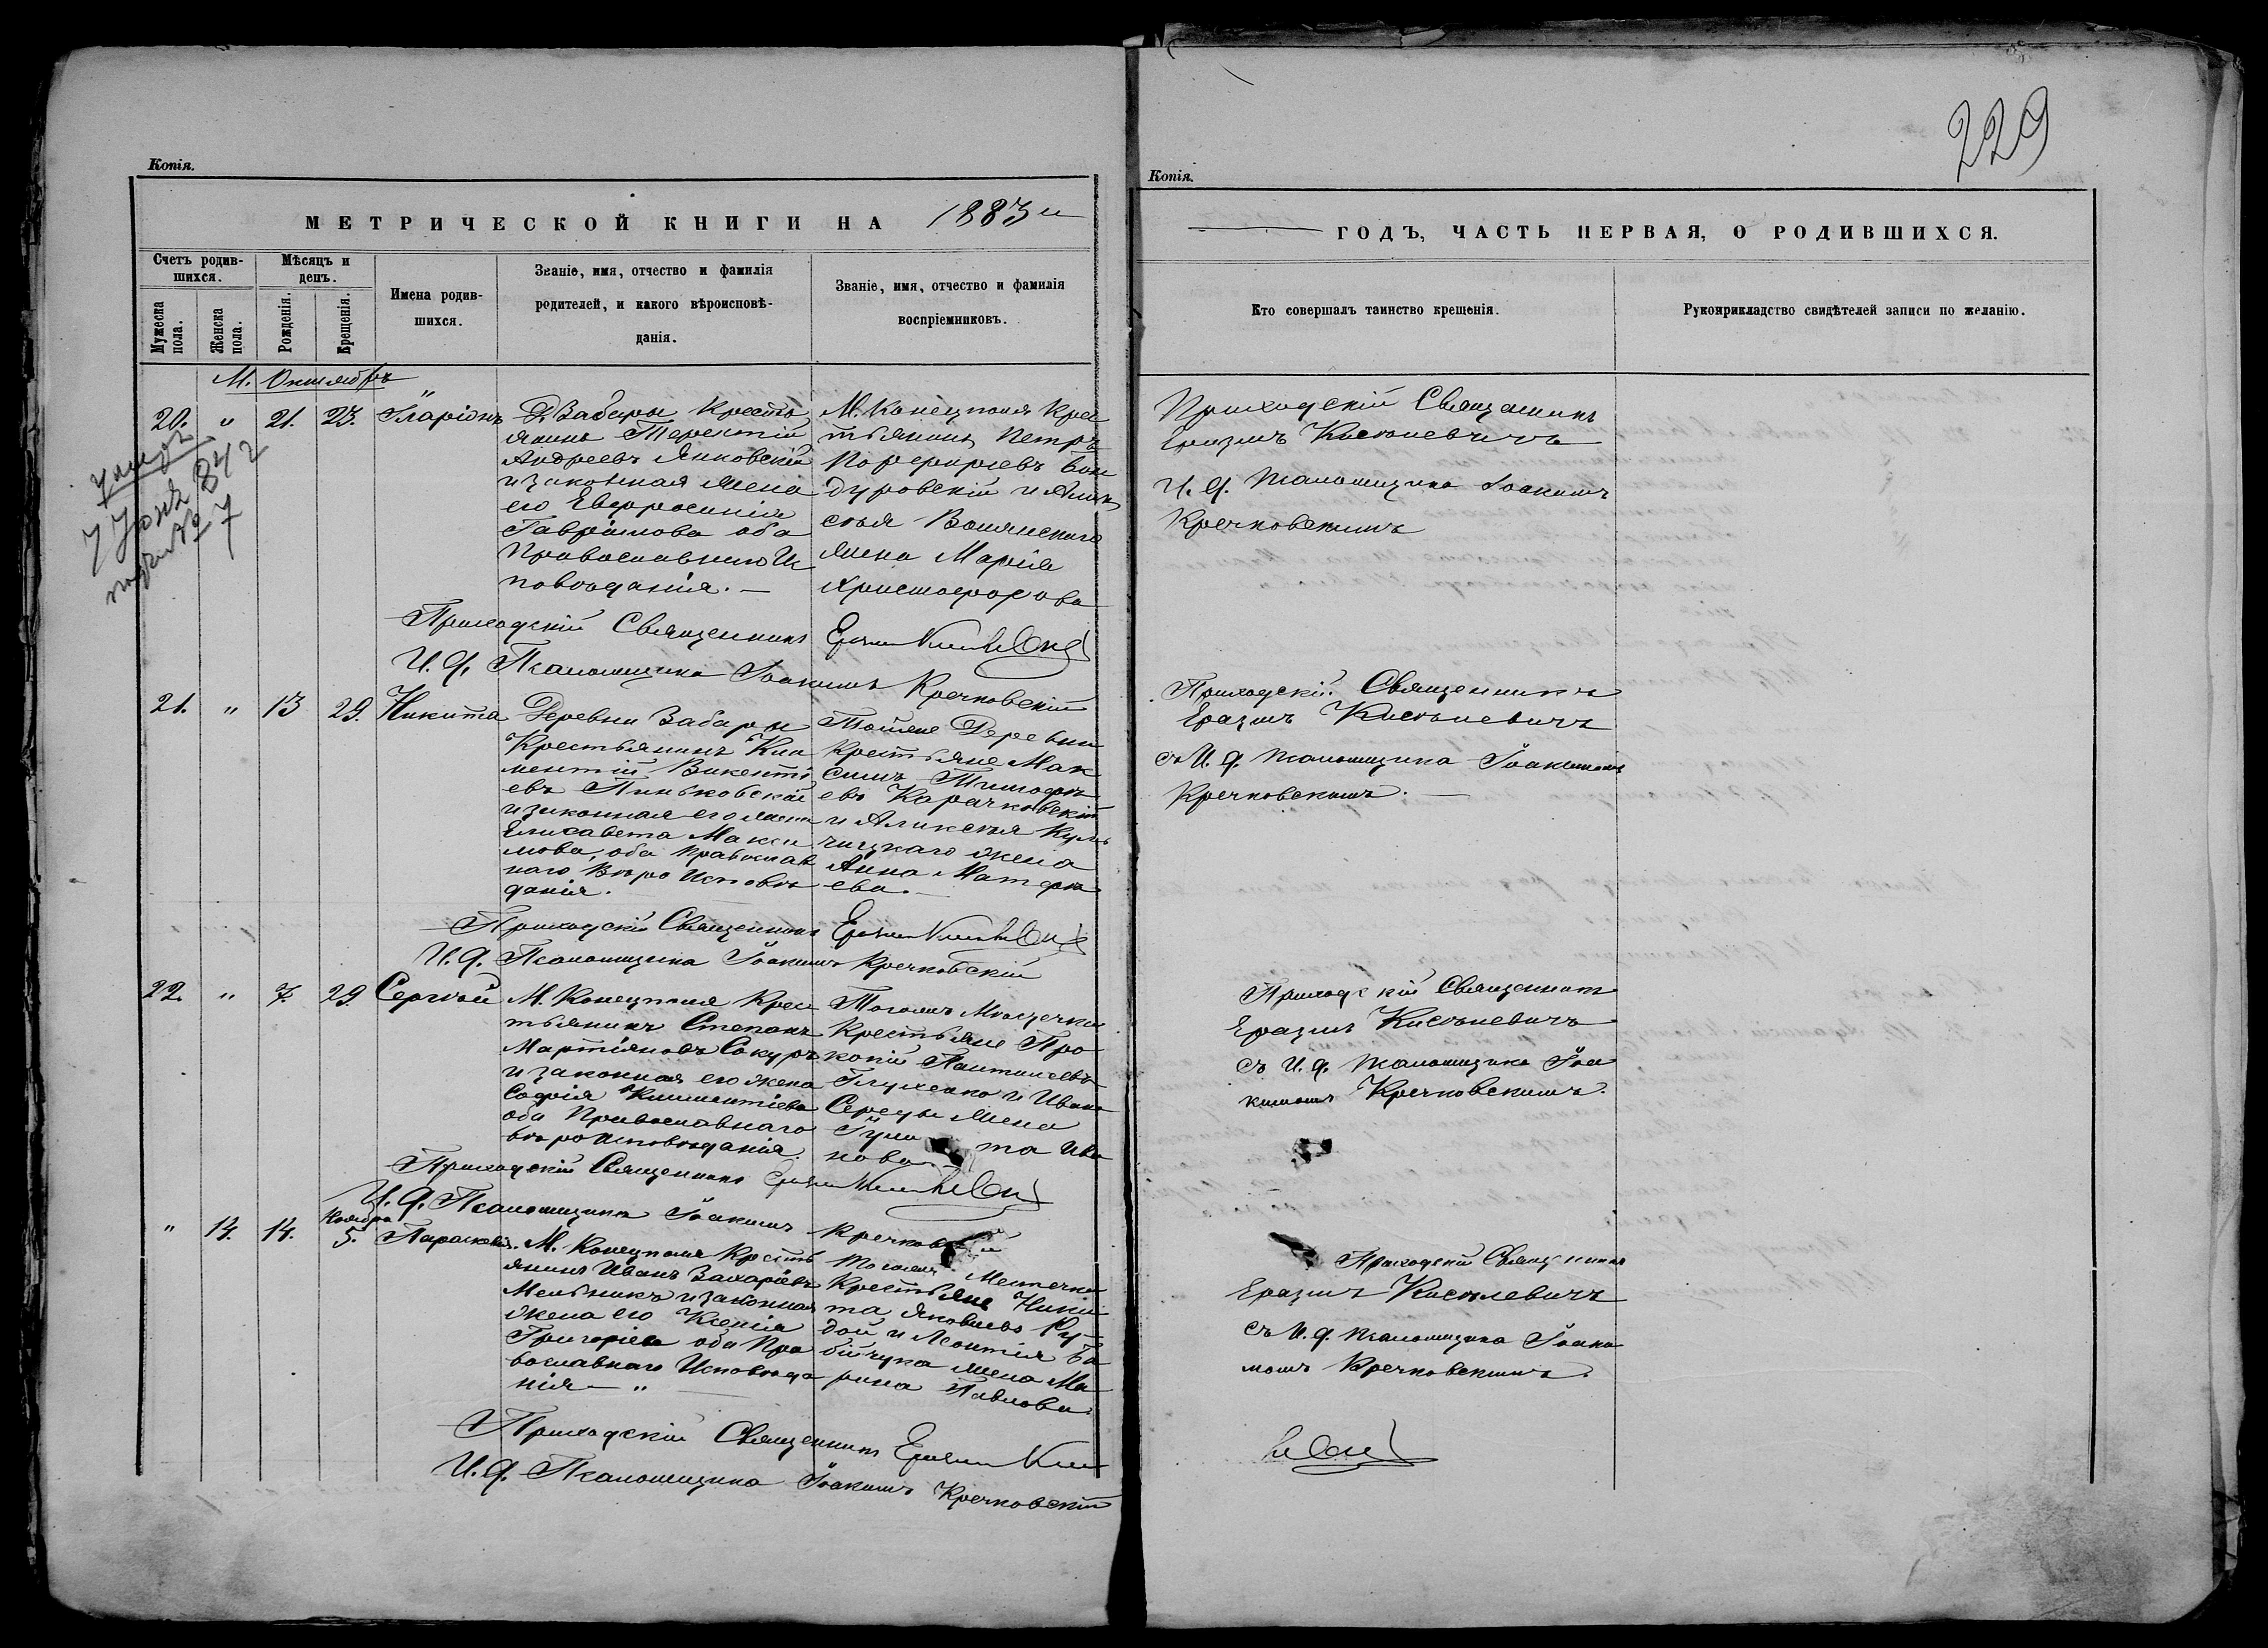 229
Копія.
МЕТРИЧЕСКОЙ КНИГИ НА 1883й
Счетъ родив-
шихся.
Мужеска пола.
Женска пола.
Мѣсяцъ и
день.
Рожденія.
Крещенія.
Имена родив-
шихся.
Званіе, имя, отчество и фамилія
родителей, и какого вѣроисповѣ-
данія.
Званіе, имя, отчество и фамилія
воспріемниковъ.
М. Октябрь
20. " 21. 23. Иларіонъ
Д Забары Кресть
янинъ Терентій
Андреевъ Янковскій
и законная жена
его Евфросинія
Гавріилова оба
Православнаго Ис
повѣданія. —
М. Конецполя Крес
тьянинъ Петръ
Порфирьевъ Бон
дуровскій и Алек
сѣя
жена Марія
Христофорова
Приходскій Священникъ
И. д. Псаломщика Іоакимъ Кречковскій
21. " 13 29. Никита
Деревни Забары
Крестьянинъ Кли
ментій Викентi
евъ Пиньковскій
и законная его жена
Елисавета Макси
мова, оба Православ
наго Вѣро Исповѣ
данія.
Тойже Деревни
Крестьяне Мак
симъ Тимофе
евъ Карачковскій
и Алексѣя Куль
чицкаго жена
Анна Матфе
ева.
Приходскій Священникъ
И. д. Псаломщика Іоакимъ Кречковскій
22. " 7. 29 Сергѣй
М. Конецполя Крес
тьянинъ Степанъ
Мартіяновъ Сокуръ
и законная его жена
Софія Климентіева
оба Православнаго
вѣроисповѣданія.
Тогожъ Мѣстечка
Крестьяне Про
копій
Глущенко и Ивана
Середы жена
та Ива
нова
Приходскій Священникъ
И. д. Псаломщика Іоакимъ Кречковскій
" 14. 14. Ноября 5. Параскева.
М. Конецполя Кресть
янинъ Иванъ Захаріевъ
Мельникъ и законная
жена его Ксенія
Григоріева оба Пра
вославнаго Исповѣда
нія — "
Тогожъ Местечка
Крестьяне Ники
та Яковлевъ Ру
дой и Леонтія Ба
бійчука жена Ма
рина Павлова.
Приходскій Священникъ
И. д. Псаломщика Іоакимъ Кречковскій
Копія.
ГОДЪ, ЧАСТЬ ПЕРВАЯ, О РОДИВШИХСЯ.
Кто совершалъ таинство крещенія.
Рукоприкладство свидѣтелей записи по желанію.
Приходскій Священникъ
Еразмъ Кисѣлевичъ
И. д. Псаломщика Іоакимъ
Кречковскимъ
Приходскій Священникъ
Еразмъ Кисѣлевичъ
съ И. д. Псаломщика Іоакимомъ
Кречковскимъ. —
Приходскій Священникъ
Еразмъ Кисѣлевичъ
съ И. д. Псаломщика Іоа
кимомъ Кречковскимъ.
Приходскій Священникъ
Еразмъ Кисѣлевичъ
съ И. д. Псаломщика Іоаки
момъ Кречковскимъ.